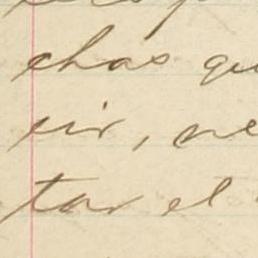 chas qu
cir, ne
tar el